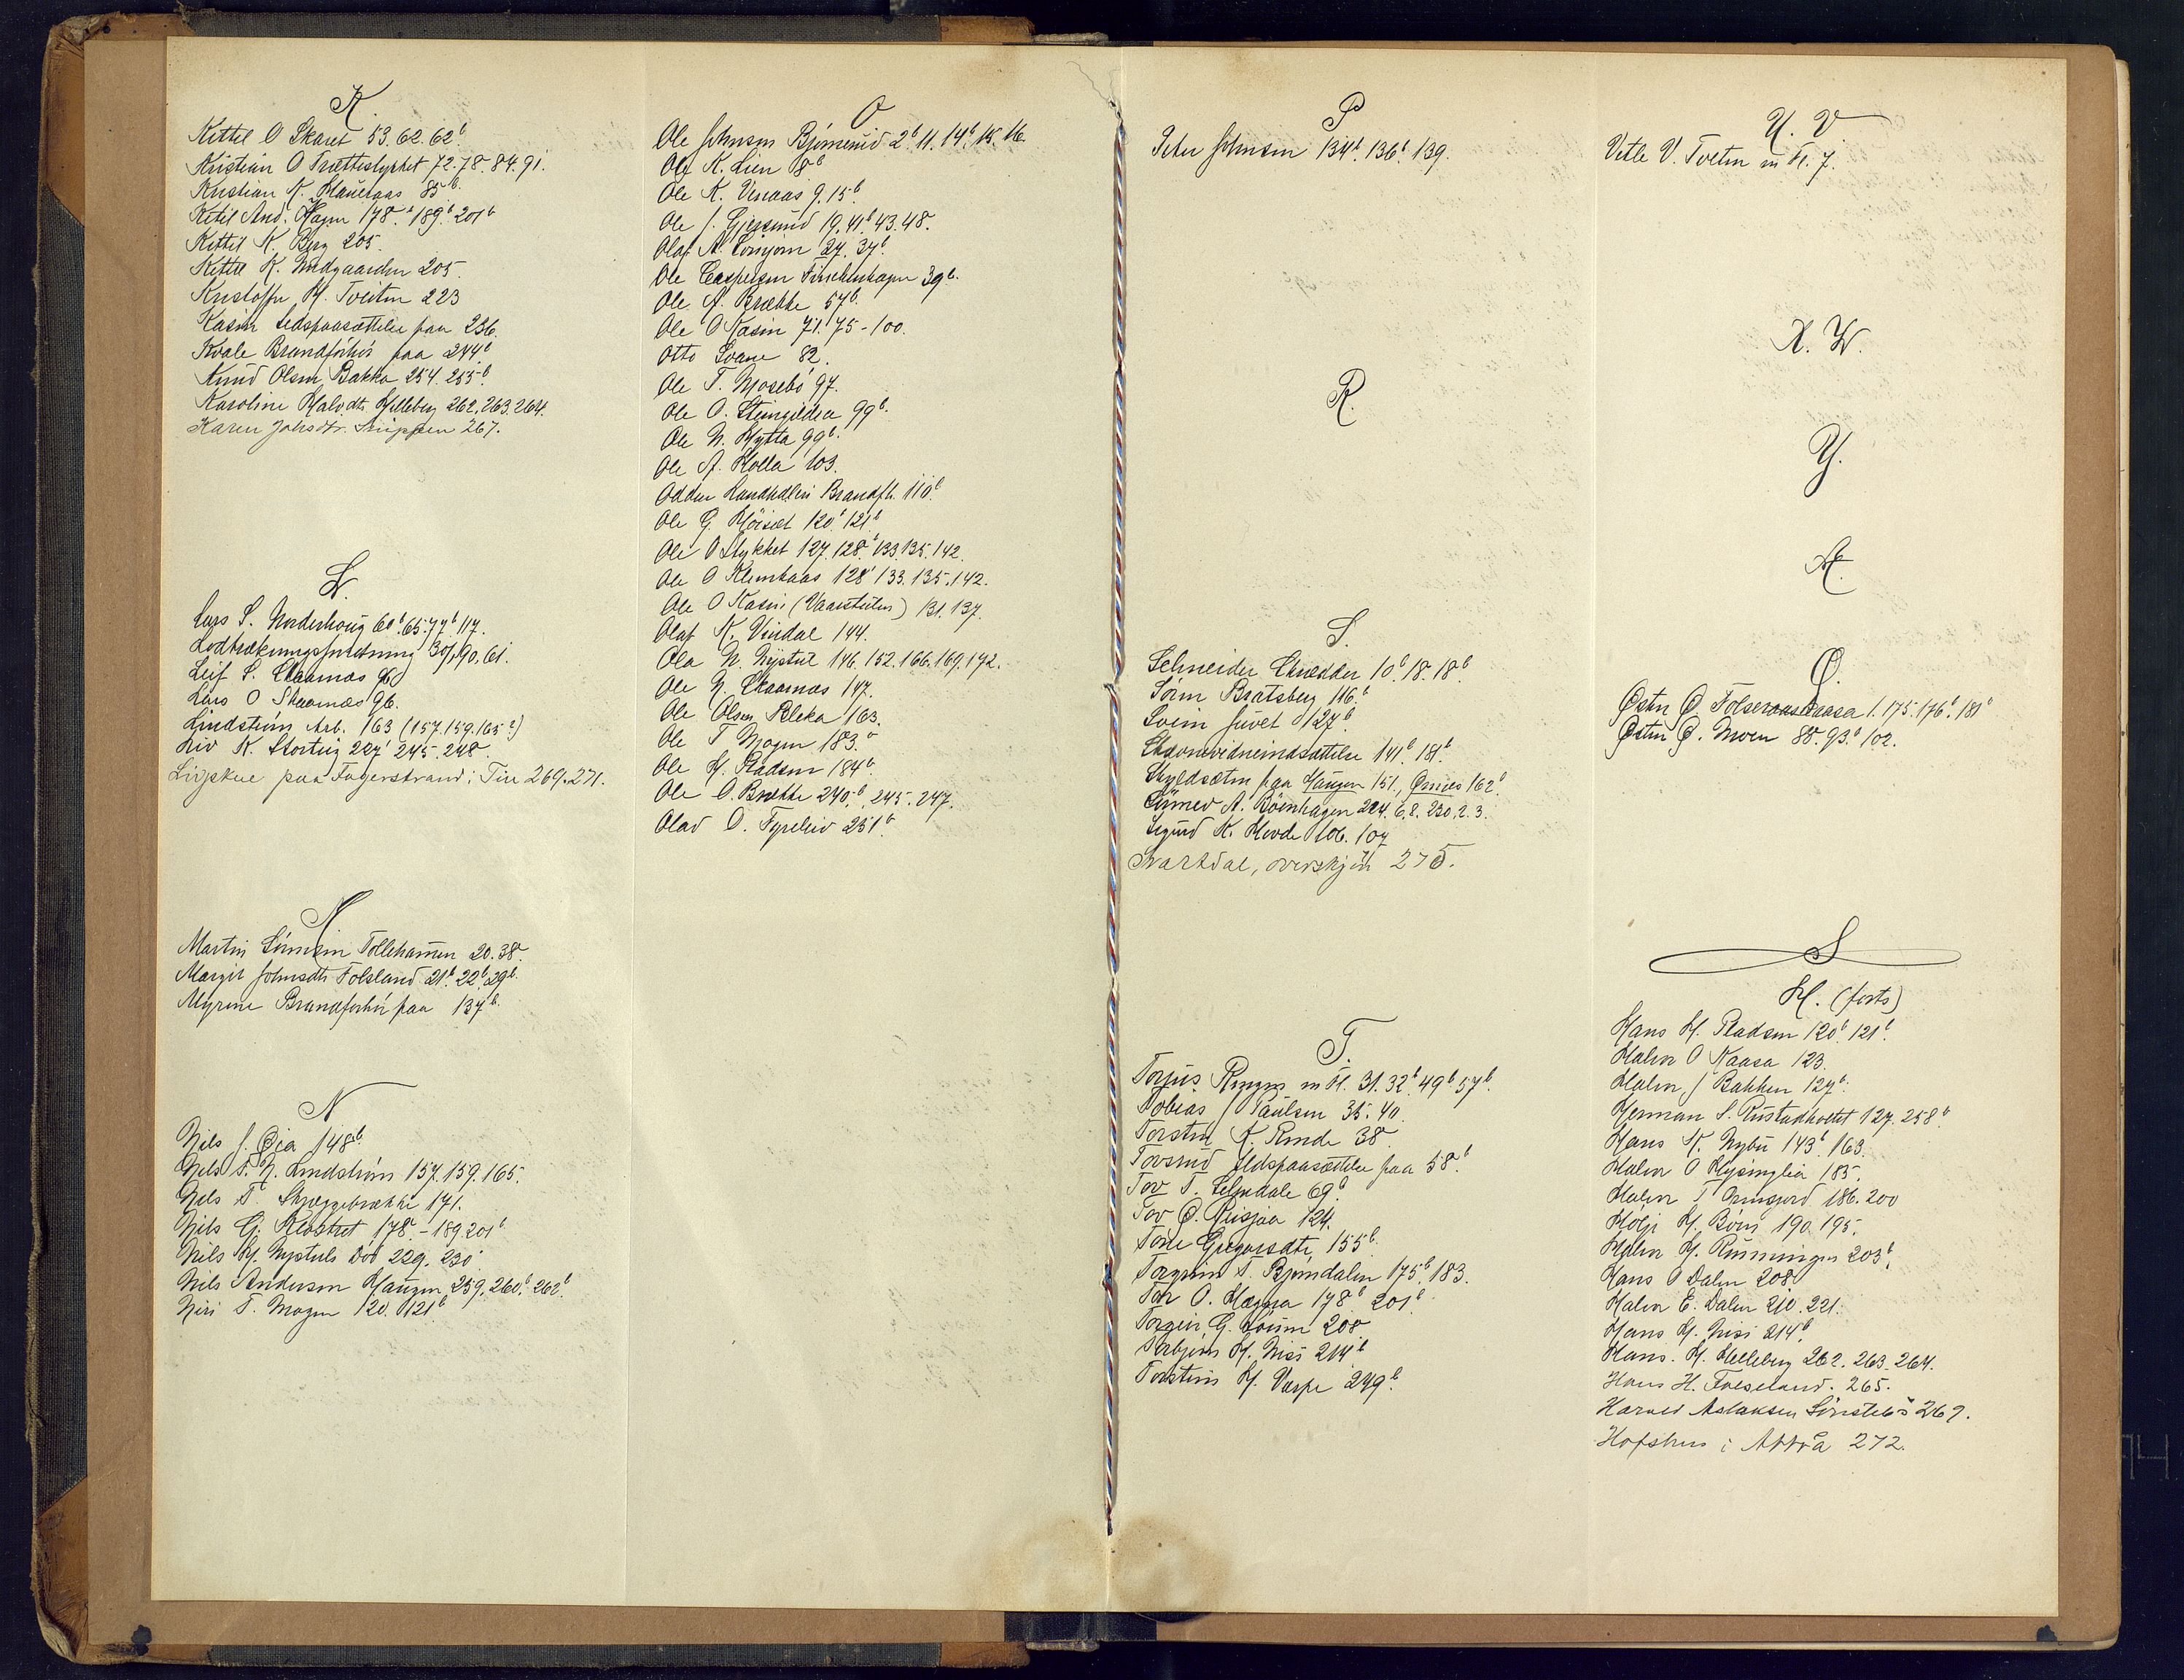 K.
Kittel O Skaret 53. 62. 62b
Kristian O Trættestykket 72. 78. 84. 91.
Kristian K. 85b.
Ketil And. Hagen 178b. 189b. 201b
Kittil K. Berg 205.
Kittil K. Midgaarden 205.
Kristoffer H. Tveiten 223
Kasin Ildspaasættelse paa 236.
Kvale Brandforhör paa 244b
Knud Olsen Bakka 254. 255b.
Karoline Halvdtr. Helleberg 262. 263. 264.
Karen Johsdtr. 267.
L.
Lars S. Norderhoug 60b. 65. 77b 117.
Lodtrækningsforretning 30/1 90. 61.
Leif S. Skaarnæs 96
Lars O Skaarnæs 96.
Lindström Arb. 163 (157. 159. 165?)
Liv K. 227b 245. 248.
Ligskue paa Fagerstrand i Tin 269. 271.
M
Martin Tollehaugen 20. 38.
Margit Johnsdtr. Folsland 21b. 22b. 29b.
Myrene Brandforhör paa 137b.
N
Nils J. Øia 148b.
Nils F. N. Lindström 157. 159. 165.
Nils T. Skjeggebrække 171.
Nils Gj. Klostret 178. - 189. 201b
Nils H. Nystuls Död 229. 230
Nils Anderson Haugen 259. 260b. 262b.
Niri T. Mogen 120. 121b
O
Ole Johnsen 2b. 11. 14b. 15. 16.
Ole K. Lien 8b
Ole K. Venaas 9. 15b.
Ole J. 19. 41b. 43. 48.
Olaf A. 27. 37b.
Ole Caspersen 39b.
Ole A. Brække 57b.
Ole O Kasin 71. 75-100.
Otto Svane 82.
Ole T. Mosebö 97.
Ole O. Steingildra 99b.
Ole N. Hytta 99b.
Ole A. Kolla 103.
Odden Landhdleri Brandfh. 110b.
Ole G. Höisæt 120b 121b
Ole O Stykket 127. 128b. 133 135. 142.
Ole O 128b 133. 135. 142.
Ole O Kasin (Vaarstulen) 131. 137.
Olaf K. Vindal 144.
Ola N. Nystul 146. 152. 166. 169. 172.
Ole N. Skaarnæs 147.
Ole Olsen 163.
Ole T Mogen 183.
Ole H. Stadsen 184b.
Ole O. Brække 240b. 245. 247.
Olav O. 251b.
P
Peter Johnsen 134b. 136b. 139.
R.
S.
Schneider 10b. 18. 18b
Sörn Bratsberg 116b
Svein Juvet 127b
Skjønsvidneindsættelse 141b. 181b.
Skyldsætn paa Haugen 151., 162b.
A. Böenhagen 224. 6. 8. 230. 2. 3.
Sigurd K. Hovde 106. 107
Svartdal, overskjön 275.
T.
Torjus m Fl. 31. 32b 49b 57b.
Tobias J Paulsen 35. 40
Torsten K. Rinde 38.
Tovsrud Ildspaasættelse paa 58b.
Tov T. Seljedale 69b
Tov Ø. Reisjaa 124.
Tone Gregarsdtr. 155b.
Torgrim T. Bjørndalen 175b. 183.
Tor O. 178b 201b.
Torgeir G. 208
Torbjörn H. Nisi 214b
Torstein H. Varpe 249b.
U. V
Vetle V. Tveten m Fl. 7.
X. W.
Y.
Æ.
Ø.
Østen Ø. 1. 175. 176b. 181b
Østen Ø. Moen 88. 93b. 102.
S
H. (forts)
Hans H. Stadsen 120b. 121b.
Halvor O Kaasa 123.
Halvor J Bakken 127b.
Herman S. Rustadkvelvet 127. 258b
Hans K. Nybu 143b. 163.
Halvor O 185.
Halvor T 186. 200
Holje H. Böen 190. 195.
Halvor H. Runningen 203b.
Hans O Dalen 208
Halvor E. Dalen 210. 221.
Hans H. Nisi 214b.
Hans. H. Helleberg 262. 263. 264.
Hans H. Folseland. 265.
Harald Aslaksen 267.
Hofshus i Attraa 272.